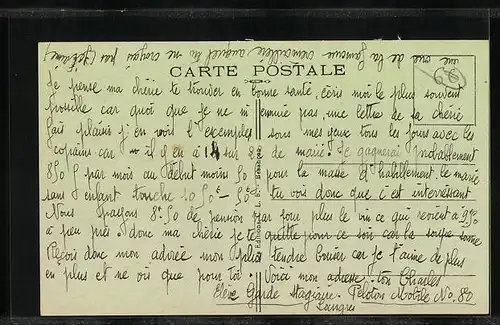 une vue de la fameuse crémaillère auquel tu ne croyais pas (Jeanne)
CARTE POSTALE
66
Je pense ma chérie te trouver en bonne santé, écris moi le plus souvent
possible car quoi que je ne m'ennuie pas, une lettre de sa chérie
fait plaisir j'en vois l'exemple sous mes yeux tous les jours avec les
copains car il y en a 14 sur de marié. Je gagnerai probablement
850 f par mois au début moins 50 pour la masse d'habillement, le marié
sans enfant touche tu vois donc que c'est interressant
Nous payons 8.50 de pension par jour plus le vin ce qui revient a
a peu près. donc ma chérie je te quitte pour ce soir car la soupe sonne
Reçois donc mon adorée mon plus tendre baiser car je t'aime de plus
en plus et ne vis que pour toi. Voici mon adresse: ton Charles
Elève Garde Stagiaire. Peloton Mobile No. 80
Langres